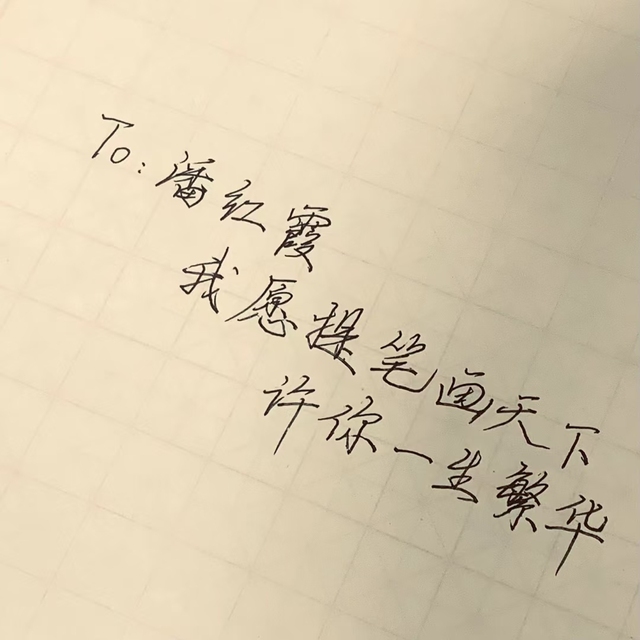 To：潘红霞
我愿提笔画天下
许你一生繁华